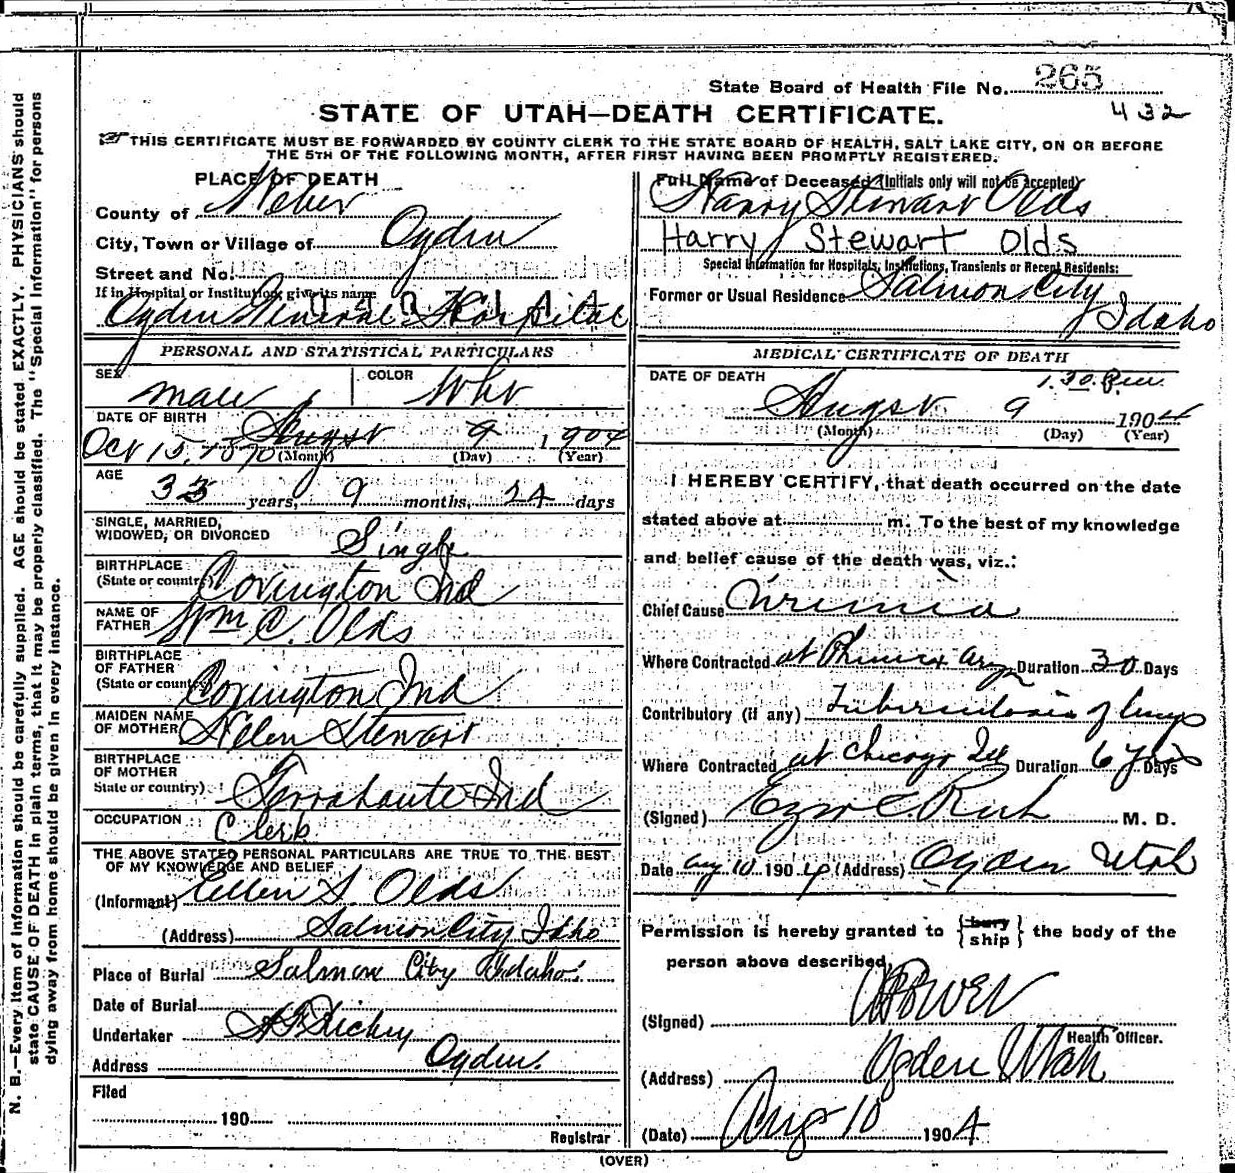 State Board of Health File No. 265
STATE OF UTAH—DEATH CERTIFICATE.
432
THIS CERTIFICATE MUST BE FORWARDED BY COUNTY CLERK TO THE STATE BOARD OF HEALTH, SALT LAKE CITY, ON OR BEFORE
THE 5TH OF THE FOLLOWING MONTH, AFTER FIRST HAVING BEEN PROMPTLY REGISTERED.
PLACE OF DEATH
County of Weber
City, Town or Village of Ogden
Street and No.
If in Hospital or Institution, give its name
Ogden General Hospital
PERSONAL AND STATISTICAL PARTICULARS
SEX male COLOR Wht
DATE OF BIRTH August 9 1904
Oct 15, 1870 (Month) (Day) (Year)
AGE
33 years, 9 months, 24 days
SINGLE, MARRIED,
WIDOWED, OR DIVORCED Single
BIRTHPLACE
(State or country) Covington Ind
NAME OF
FATHER Wm C. Olds
BIRTHPLACE
OF FATHER
(State or country) Covington Ind
MAIDEN NAME
OF MOTHER Helen Stewart
BIRTHPLACE
OF MOTHER
State or country) Terrahaute Ind
OCCUPATION Clerk
THE ABOVE STATED PERSONAL PARTICULARS ARE TRUE TO THE BEST
OF MY KNOWLEDGE AND BELIEF
(Informant) Ellen S. Olds
(Address) Salmon City Idho
Place of Burial Salmon City Idaho
Date of Burial
Undertaker
Address Ogden.
Filed
190
Registrar
Full Name of Deceased (Initials only will not be accepted)
Harry Stewart Olds
Harry Stewart Olds
Special Information for Hospitals, Institutions, Transients or Recent Residents:
Former or Usual Residence Salmon City
Idaho
MEDICAL CERTIFICATE OF DEATH
DATE OF DEATH 1.30 P.m.
August 9 1904
(Month) (Day) (Year)
I HEREBY CERTIFY, that death occurred on the date
stated above at m. To the best of my knowledge
and belief cause of the death was, viz.:
Chief Cause Uremia
Where Contracted at Phenix Ariz Duration 30 Days
Contributory (if any) Tuberculosis of lungs
Where Contracted at Chicago Ill Duration 6 yrs Days
(Signed) Ezra C. Rich M. D.
Date Aug 10 1904 (Address) Ogden Utah
Permission is hereby granted to {bury ship} the body of the
person above described,
(Signed)
Health Officer.
(Address) Ogden Utah
(Date) Aug 10 1904
(OVER)
N. B.—Every item of information should be carefully supplied. AGE should be stated EXACTLY. PHYSICIANS should
state CAUSE OF DEATH in plain terms, that it may be properly classified. The "Special Information" for persons
dying away from home should be given in every instance.